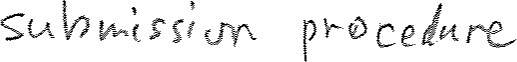 submission procedure